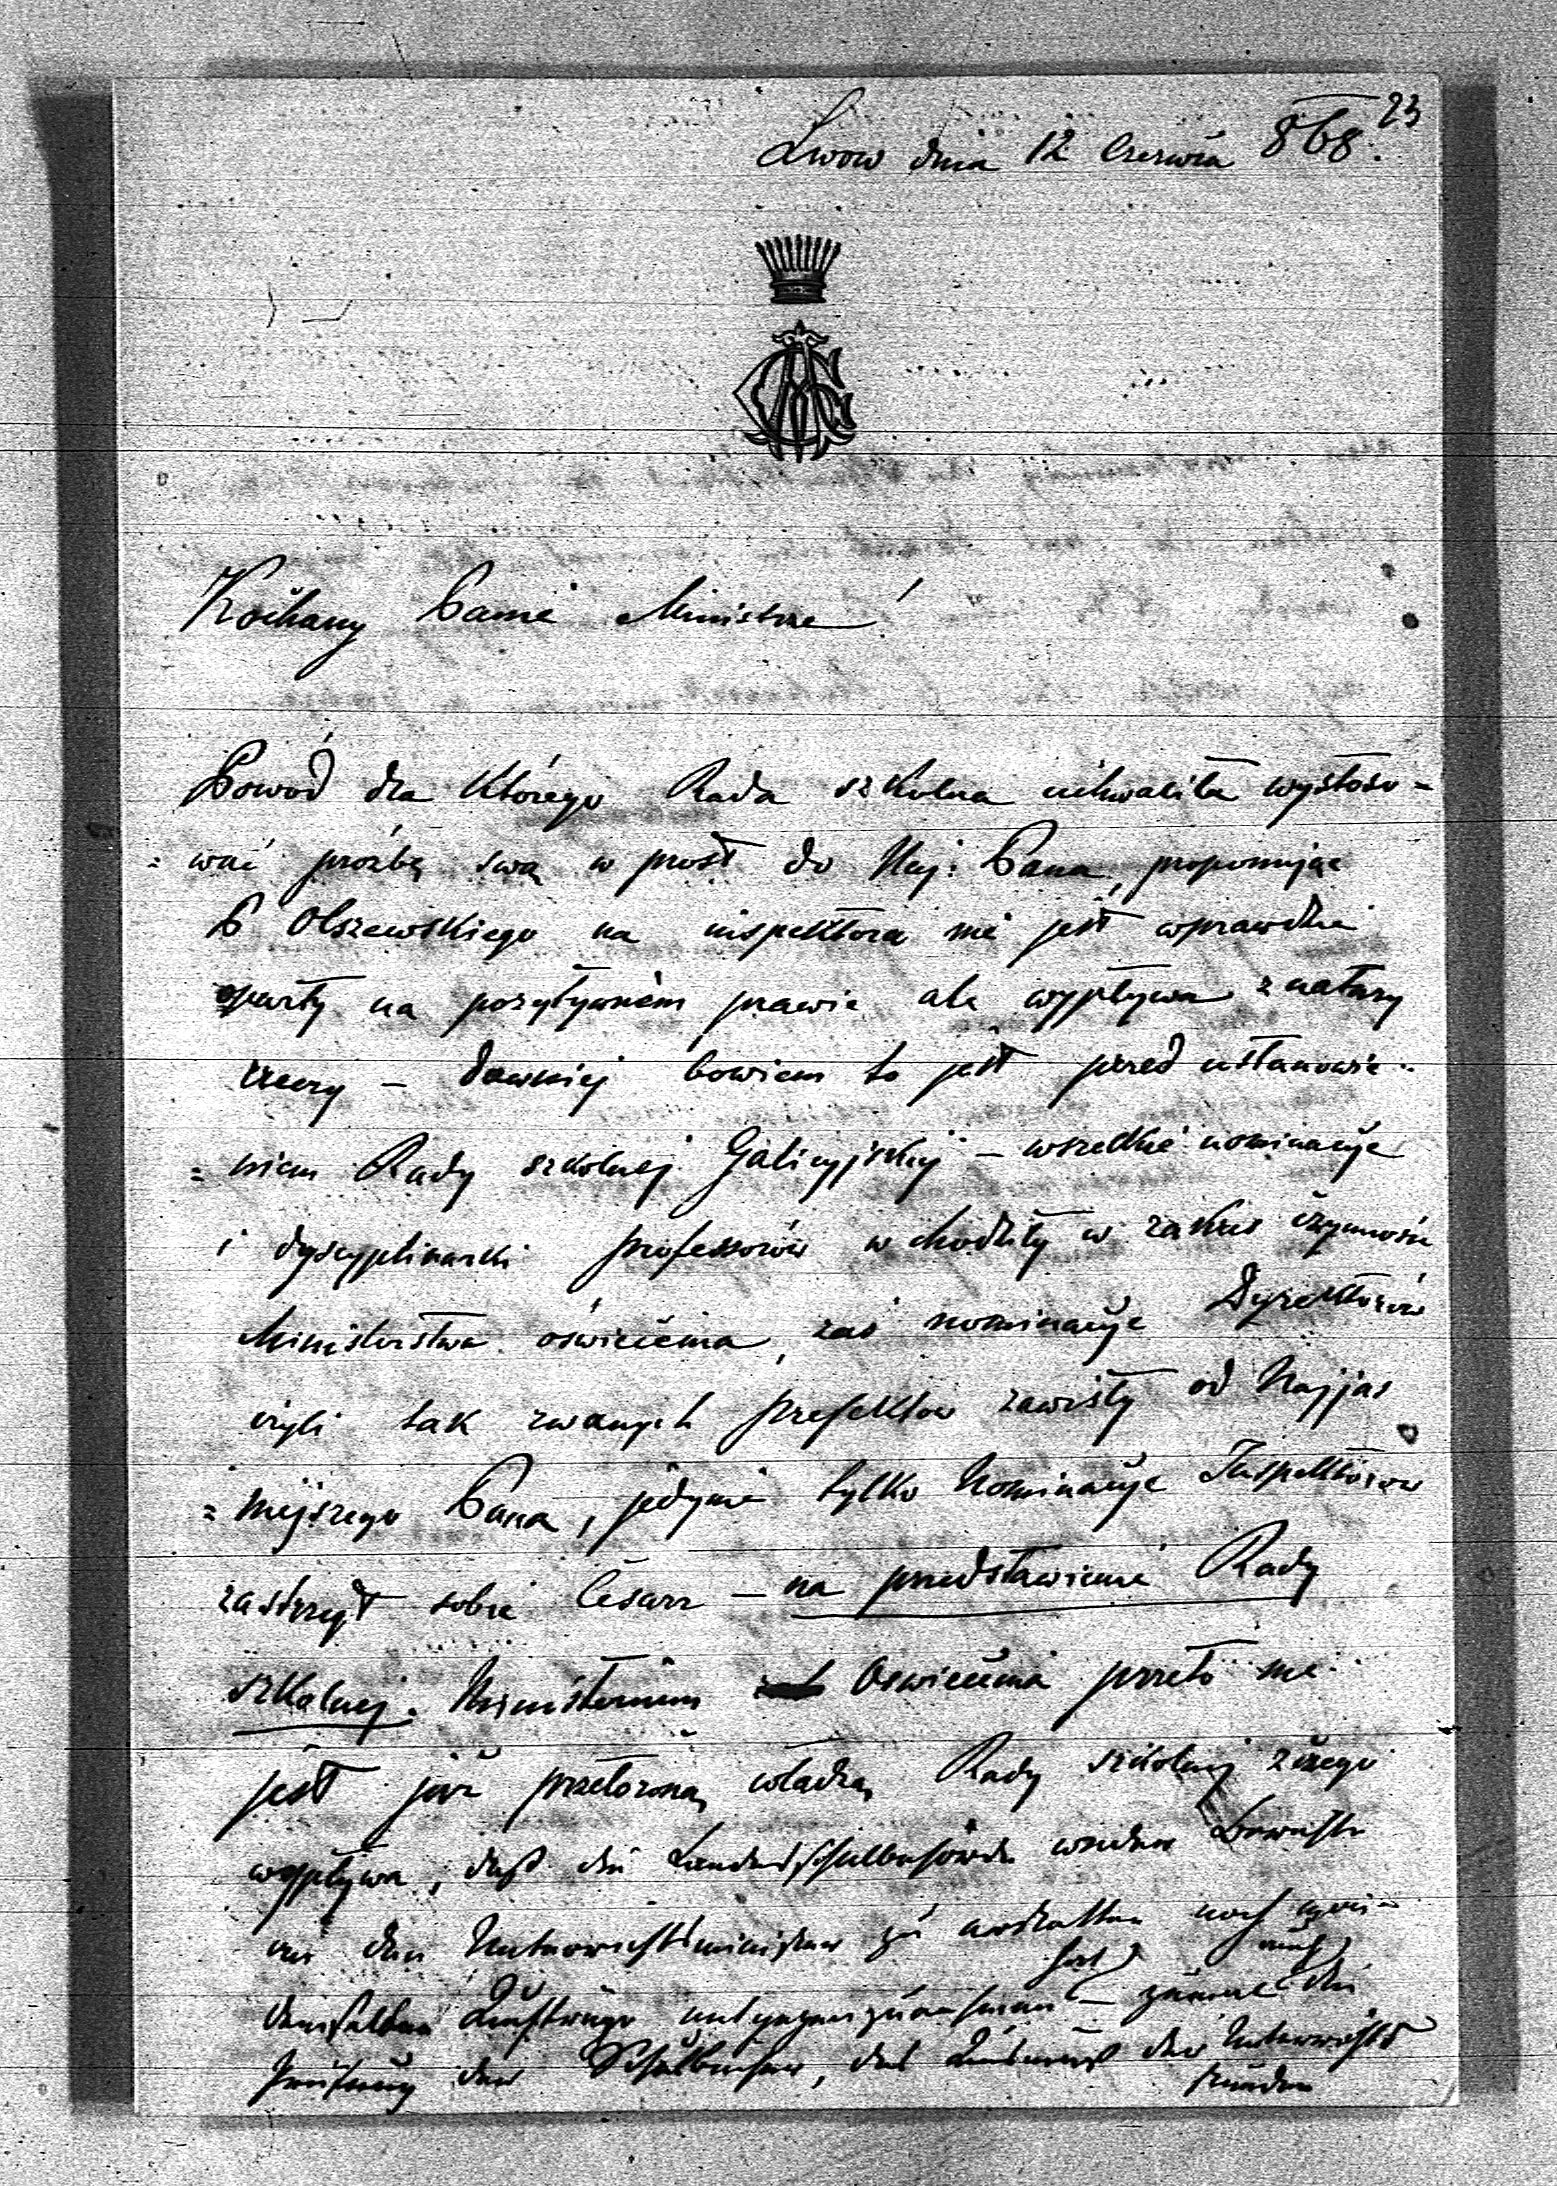 23
Lwow dnia 12 Czerwca 868.
Kochany Panie Ministrze!
Powód dla którego Rada szkolna uchwaliła wystoso=
=wać prożbę swą w prost do Naj: Pana, proponując
P Olszewskiego na inspektora nie jest wprawdzie
oparty na pozytywném prawie ale wypływa z natury
rzeczy – dawniej bowiem to jest przed ustanowie=
=niem Rady szkolnej Galicyjskiej – wszelkie nominacye
i dyscyplinarki professorów wchodziły w zakres czynności
Ministerstwa oświecenia, zaś nominacye Dyrektorów
czyli tak zwanych prefektow zawisły od Najjas
=niejszego Pana, jedynie tylko Nominacye Inspektorow
zastrzegł sobie Cesarz – na przedstawienie Rady
szkolnej. Ministerium Oswiecenia przeto nie
jest już przełożoną władzą Rady szkolnej z czego
wypływa, daß die Landesschulbehörde weder Berichte
an den Unterrichtsminister zu erstatten noch von
demselben Aufträge entgegenzunehmen hat – zumal auch die
Prüfung der Schulbücher, das Ausmaß der Unterrichts
stunden